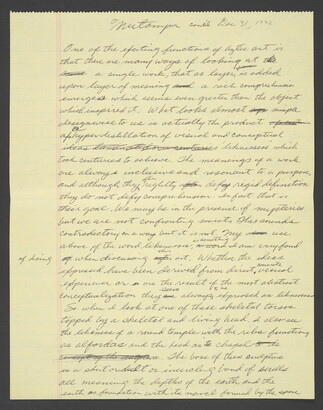 One of the functions of art is
that there are many ways of looking at
a single work, that as layer is added
upon layer of meaning a rich comprehension
emerges which seems even greater than the object
which inspired it. What looks almost simple
is actually the product
distillation of visual and conceptual
likenesses which
took centuries to achieve. The meanings of a work
are always inclusive and resonant to a purpose,
and although they rightly defy rigid definition
they do not defy comprehension. In fact that is
their goal. We may be in the presence of mysteries
but we are not confronting secrets. This sounds
contradictory in a way but it is not. My use
above of the word likenesses, a word I am very fond
of using when discussing art. Whether the ideas
expressed have been derived from direct, visual
experience or are the result of the most abstract
conceptualization they always expressed as likenesses
So when I look at one of these skeletal torsos
topped by a skeletal and living head, I also see
the likeness of a round temple with the ribs functioning
as and the head as
The base of these sculptures
is a short or band of
all meaning the depths of the earth and the
earth as foundation with its formed by the same